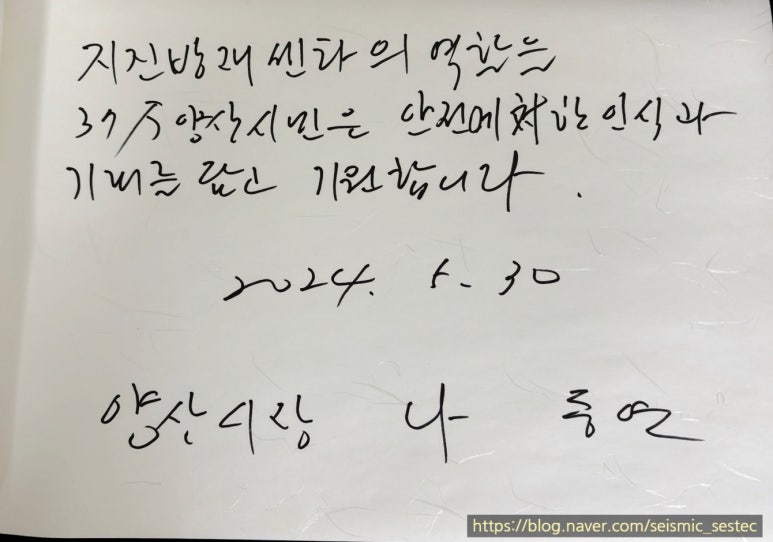 지진방재 쎈타의 역할은
37万 양산시민은 안전에 対한 인식과
기대를 담고 기원합니다.
2024. 5. 30
양산시장 나 동연
https://blog.naver.com/seismic_sestec